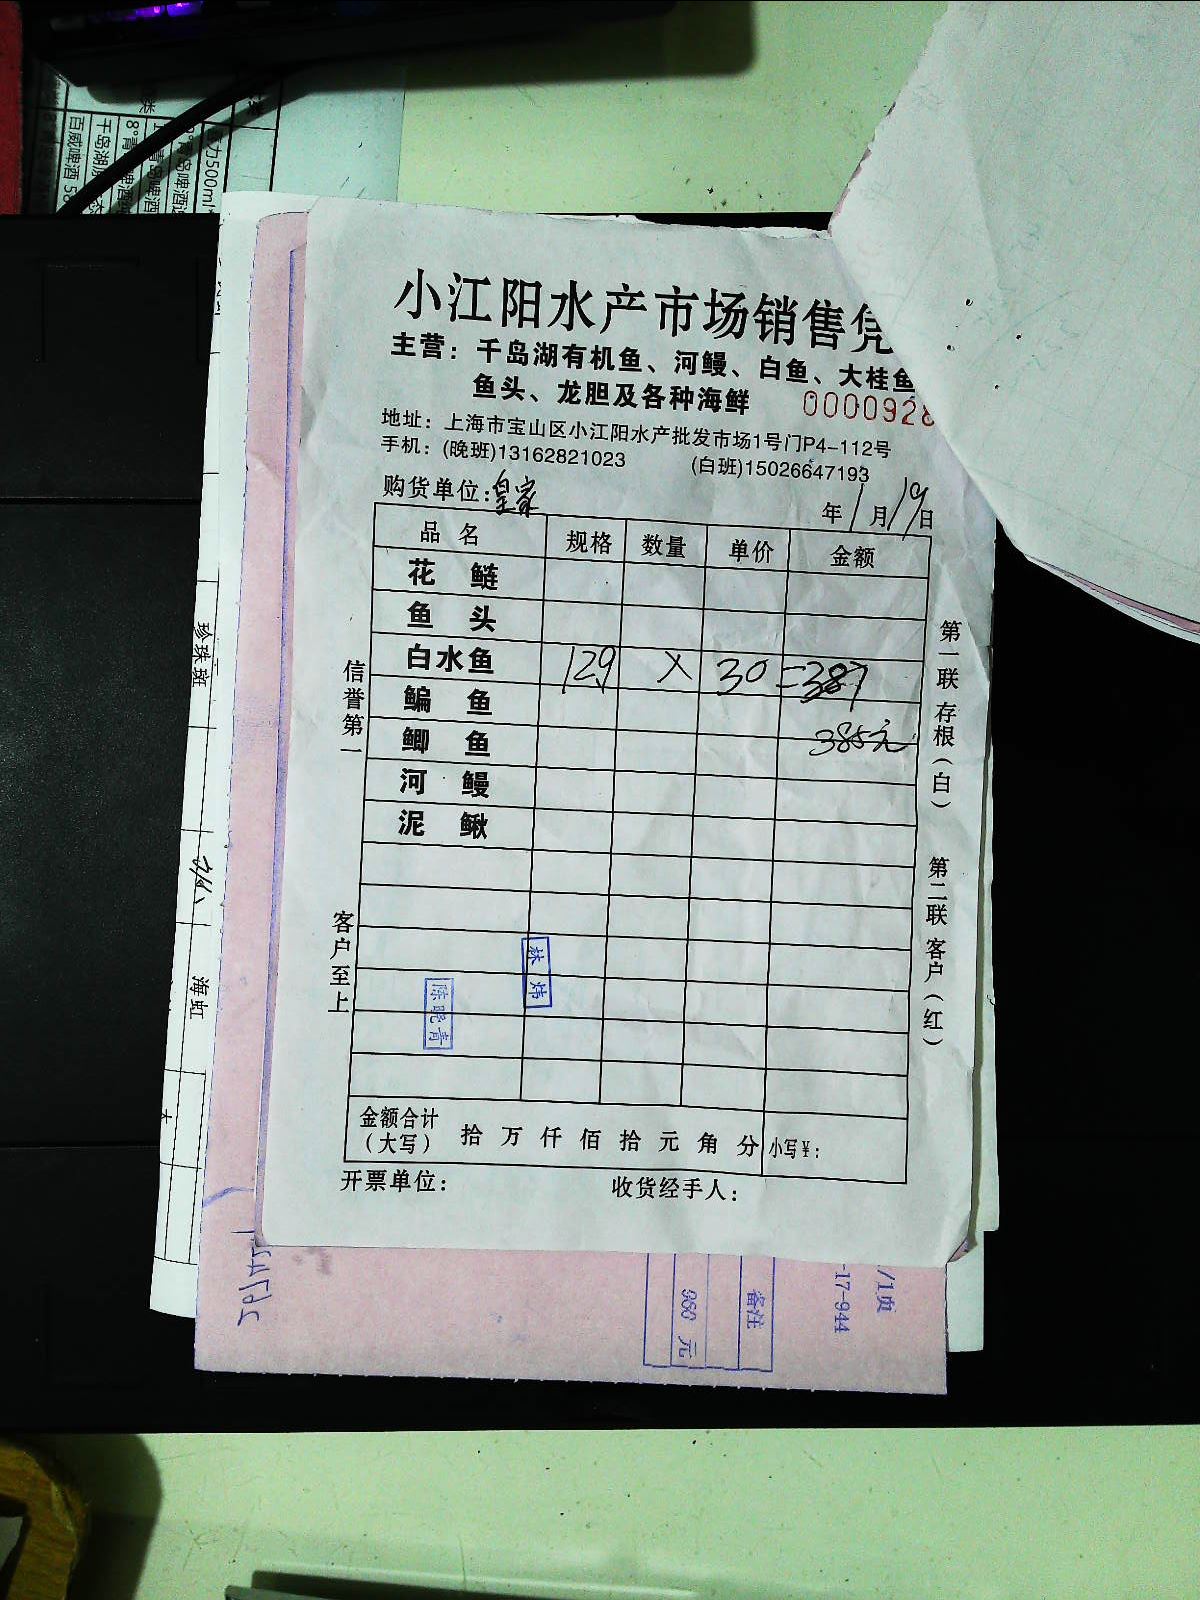 小江阳水产市场销售凭
主营：千岛湖有机鱼、河鳗、白鱼、大桂鱼
鱼头、龙胆及各种海鲜
0000928
地址：上海市宝山区小江阳水产批发市场1号门P4-112号
手机：(晚班)13162821023 (白班)15026647193
购货单位：皇家 年1月19日
品名 规格 数量 单价 金额
花鲢
鱼头
白水鱼 129 × 30 =387
鳊鱼
鲫鱼 385元
河鳗
泥鳅
金额合计（大写） 拾万仟佰拾元角分 小写￥：
开票单位： 收货经手人：
信誉第一
客户至上
第一联 存根（白）
第二联 客户（红）
林炜
陈晓青
珍珠斑
海虹
备注
980 元
/1页
-17-944
百威啤酒 58
千岛湖